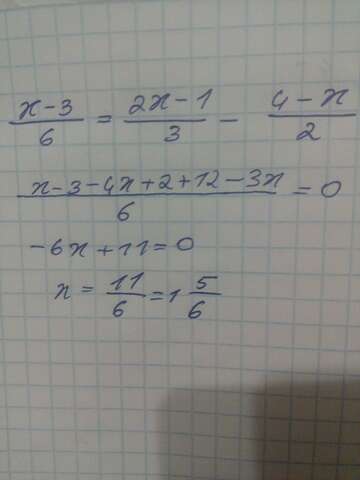 (x-3)/6 = (2x-1)/3 - (4-x)/2
(x-3-4x+2+12-3x)/6 = 0
-6x+11=0
x = 11/6 = 1 5/6